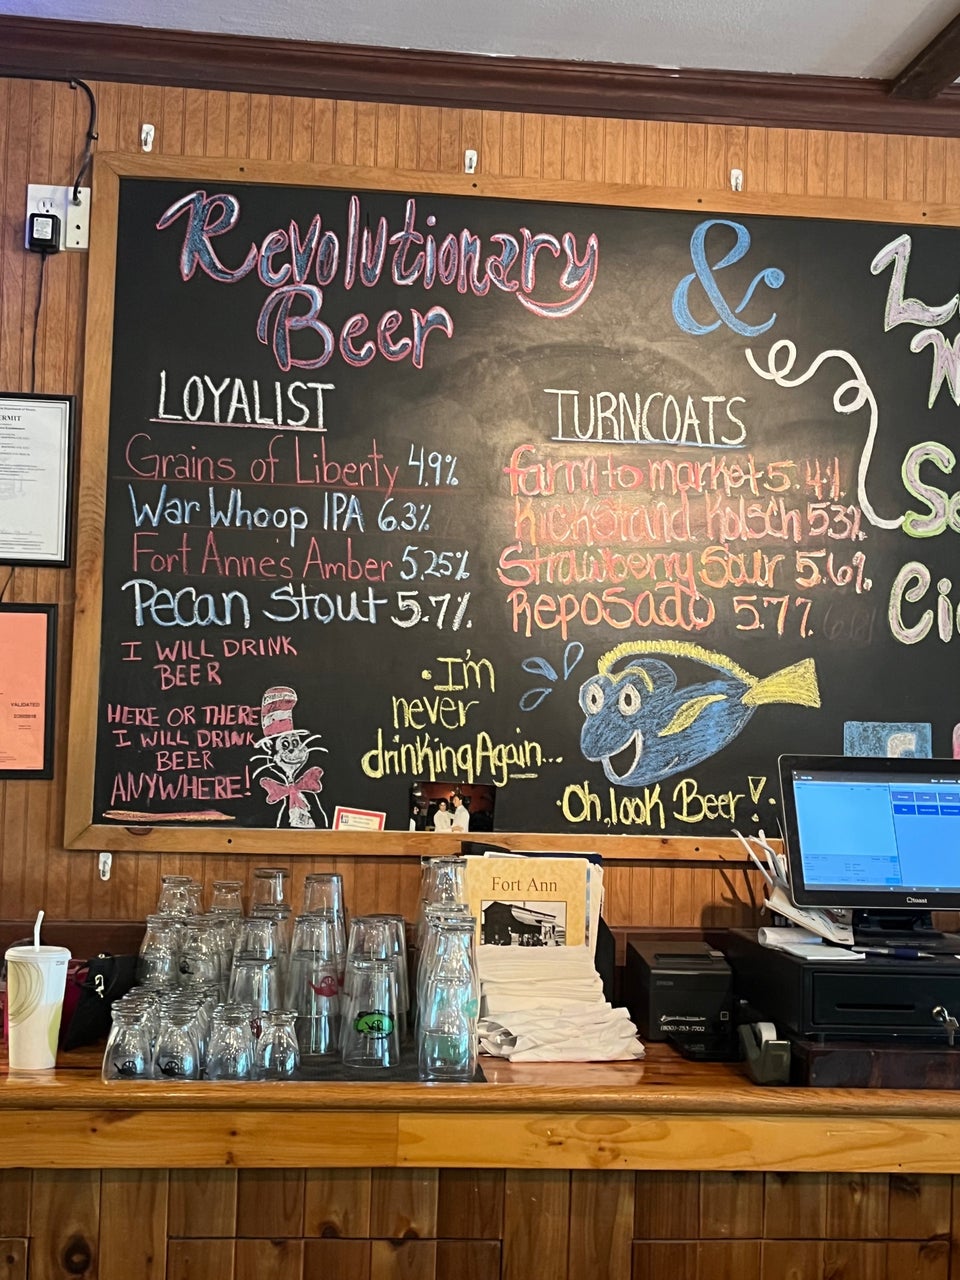 Revolutionary
Beer
&
LOYALIST
Grains of Liberty 4.9%
War Whoop IPA 6.3%
Fort Anne's Amber 5.25%
Pecan Stout 5.7%
TURNCOATS
farm to market 5.4%
Kickstand Kolsch 5.3%
Strawberry Sour 5.6%
Reposado 5.7%
I WILL DRINK
BEER
HERE OR THERE
I WILL DRINK
BEER
ANYWHERE!
·I'm
never
drinking Again...
·Oh, look Beer!·
PERMIT
VALIDATED
Fort Ann
toast
EPSON
(800)-753-7702